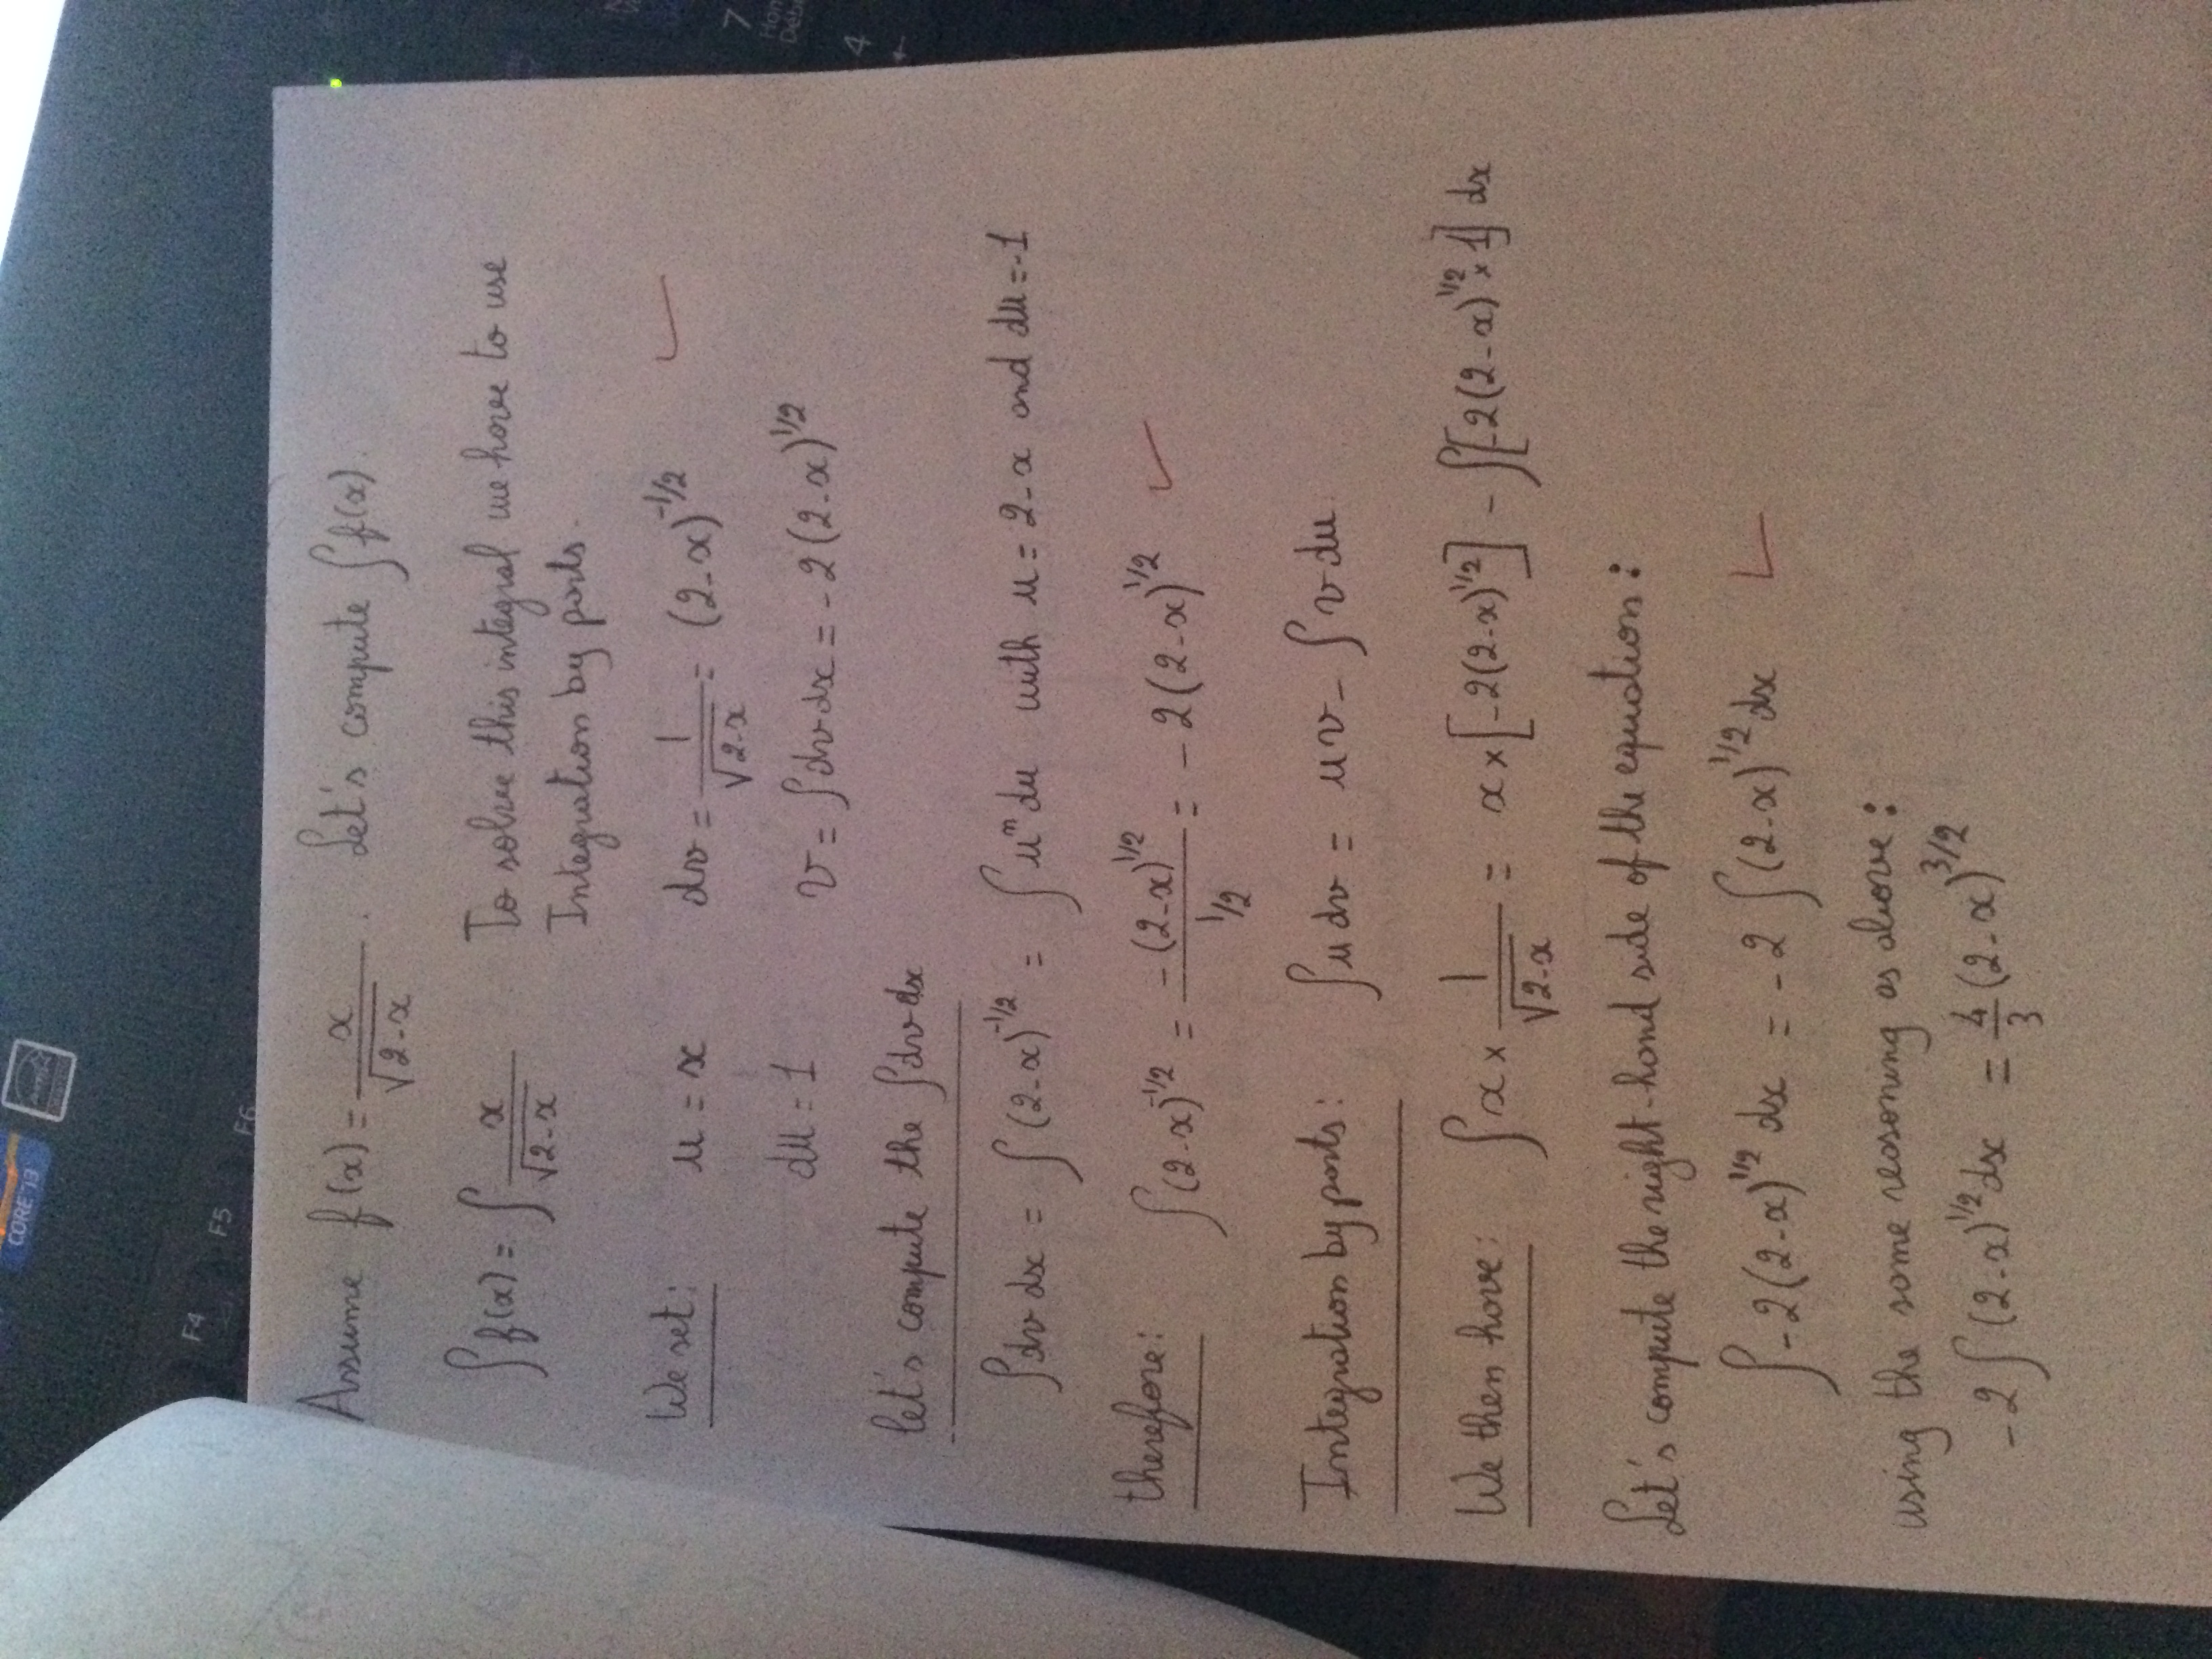 CORE i3
F4 F5 F6
7
Hom
Déb
4
←
Assume f(x) = x/√(2-x). Let's compute ∫f(x).
∫f(x) = ∫ x/√(2-x) To solve this integral we have to use
Integration by parts.
We set: u = x dv = 1/√(2-x) = (2-x)^(-1/2)
du = 1 v = ∫dv dx = -2(2-x)^(1/2)
Let's compute the ∫dv dx
∫dv dx = ∫(2-x)^(-1/2) = ∫u^n du with u = 2-x and du = -1
therefore: ∫(2-x)^(-1/2) = -(2-x)^(1/2)/(1/2) = -2(2-x)^(1/2)
Integration by parts: ∫u dv = uv - ∫v du
We then have: ∫x × 1/√(2-x) = x × [-2(2-x)^(1/2)] - ∫[-2(2-x)^(1/2) × 1] dx
Let's compute the right-hand side of the equation:
∫-2(2-x)^(1/2) dx = -2∫(2-x)^(1/2) dx
using the same reasoning as above:
-2∫(2-x)^(1/2) dx = 4/3 (2-x)^(3/2)